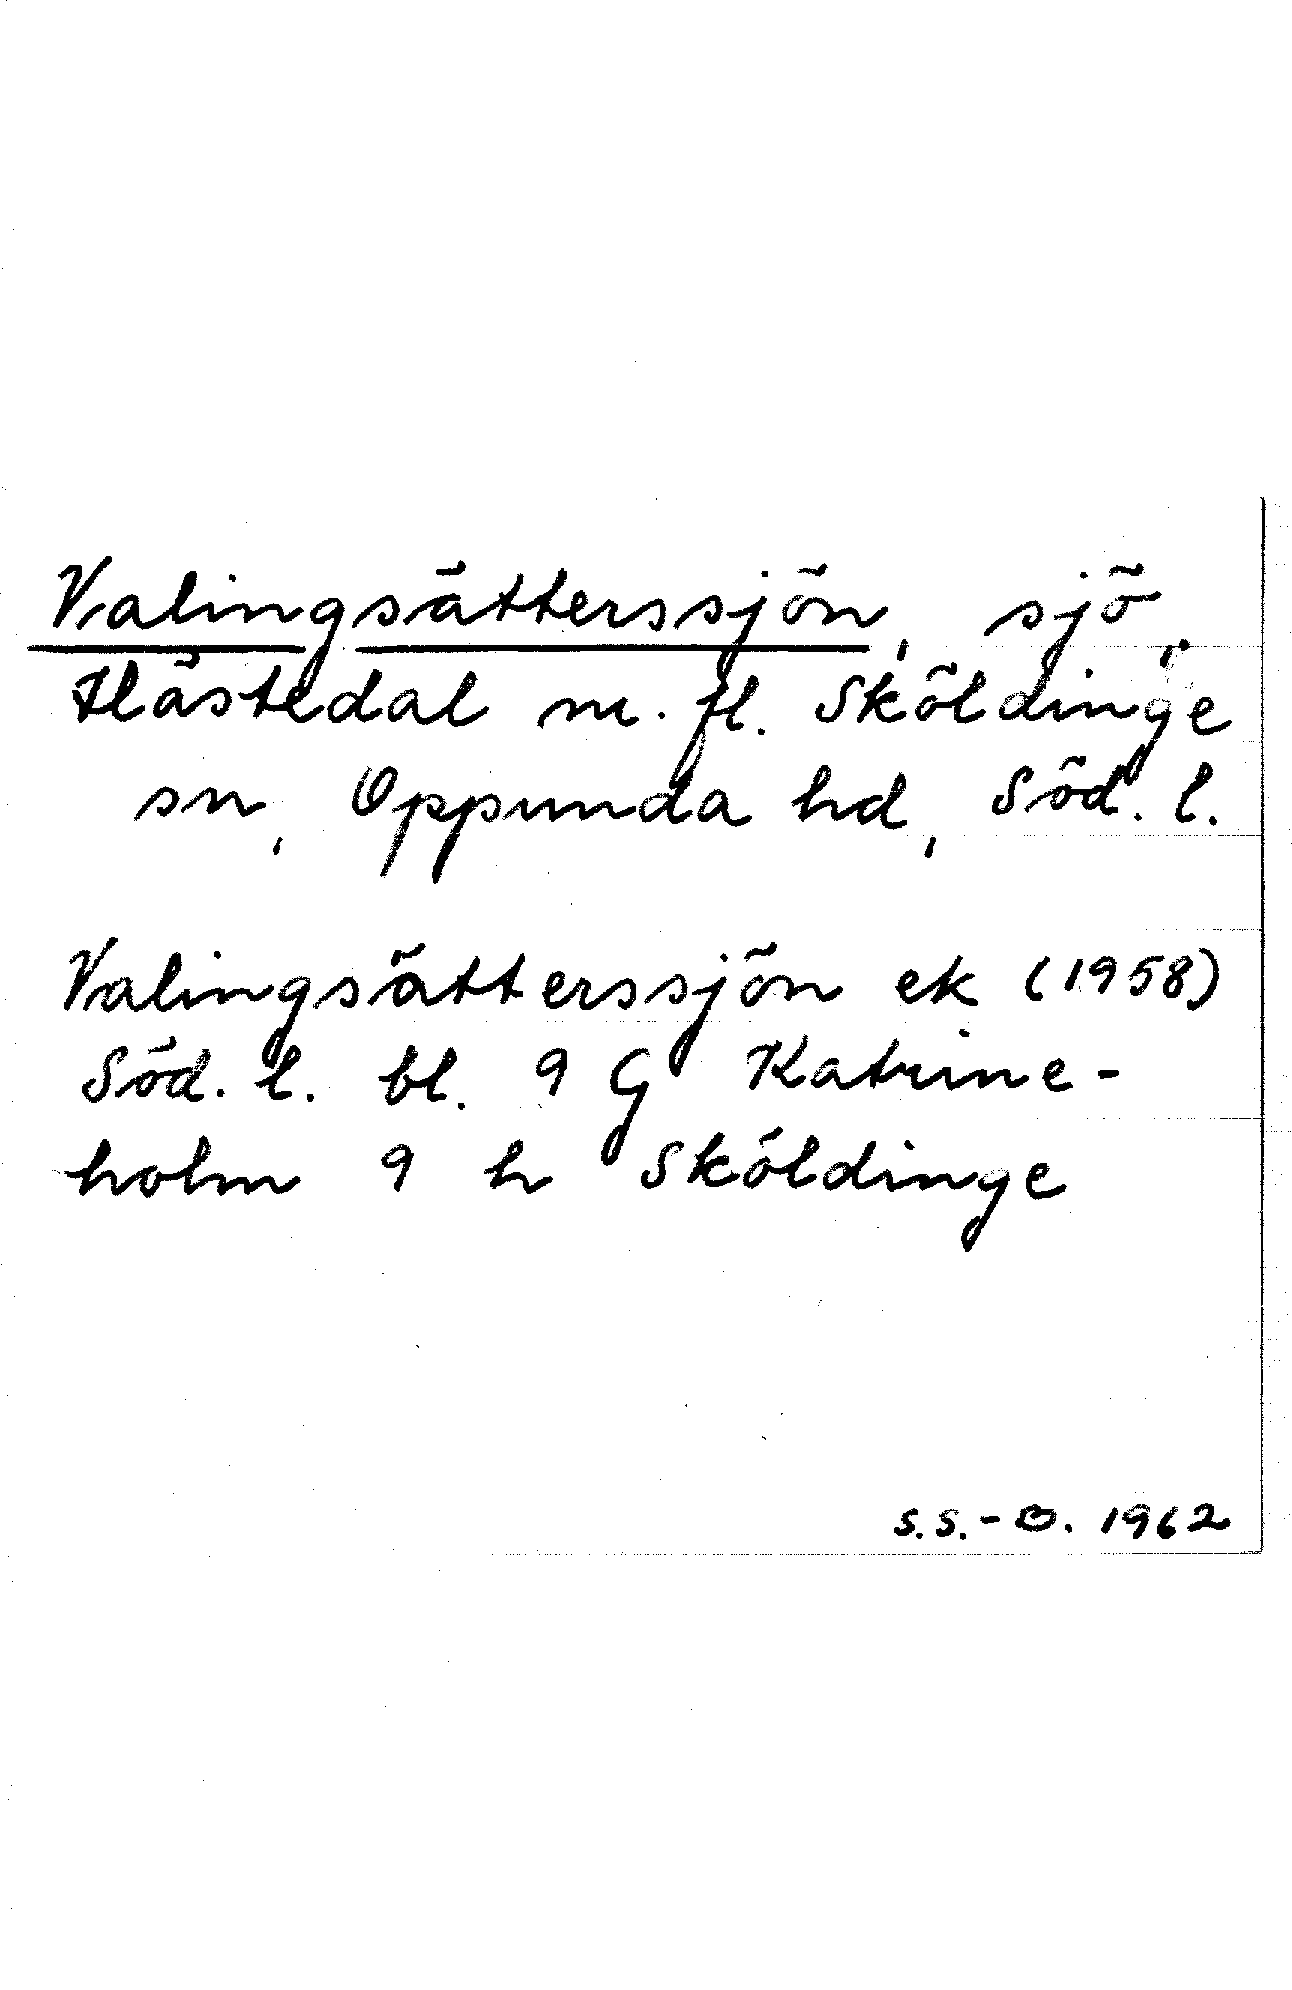 Valingsätterssjön, sjö,
Hästedal m. fl. Sköldinge
sn, Oppunda hd, Söd. l.
Valingsätterssjön ek (1958)
Söd. l. bl. 9 G Katrine-
holm 9 h Sköldinge
S.S.-B. 1962